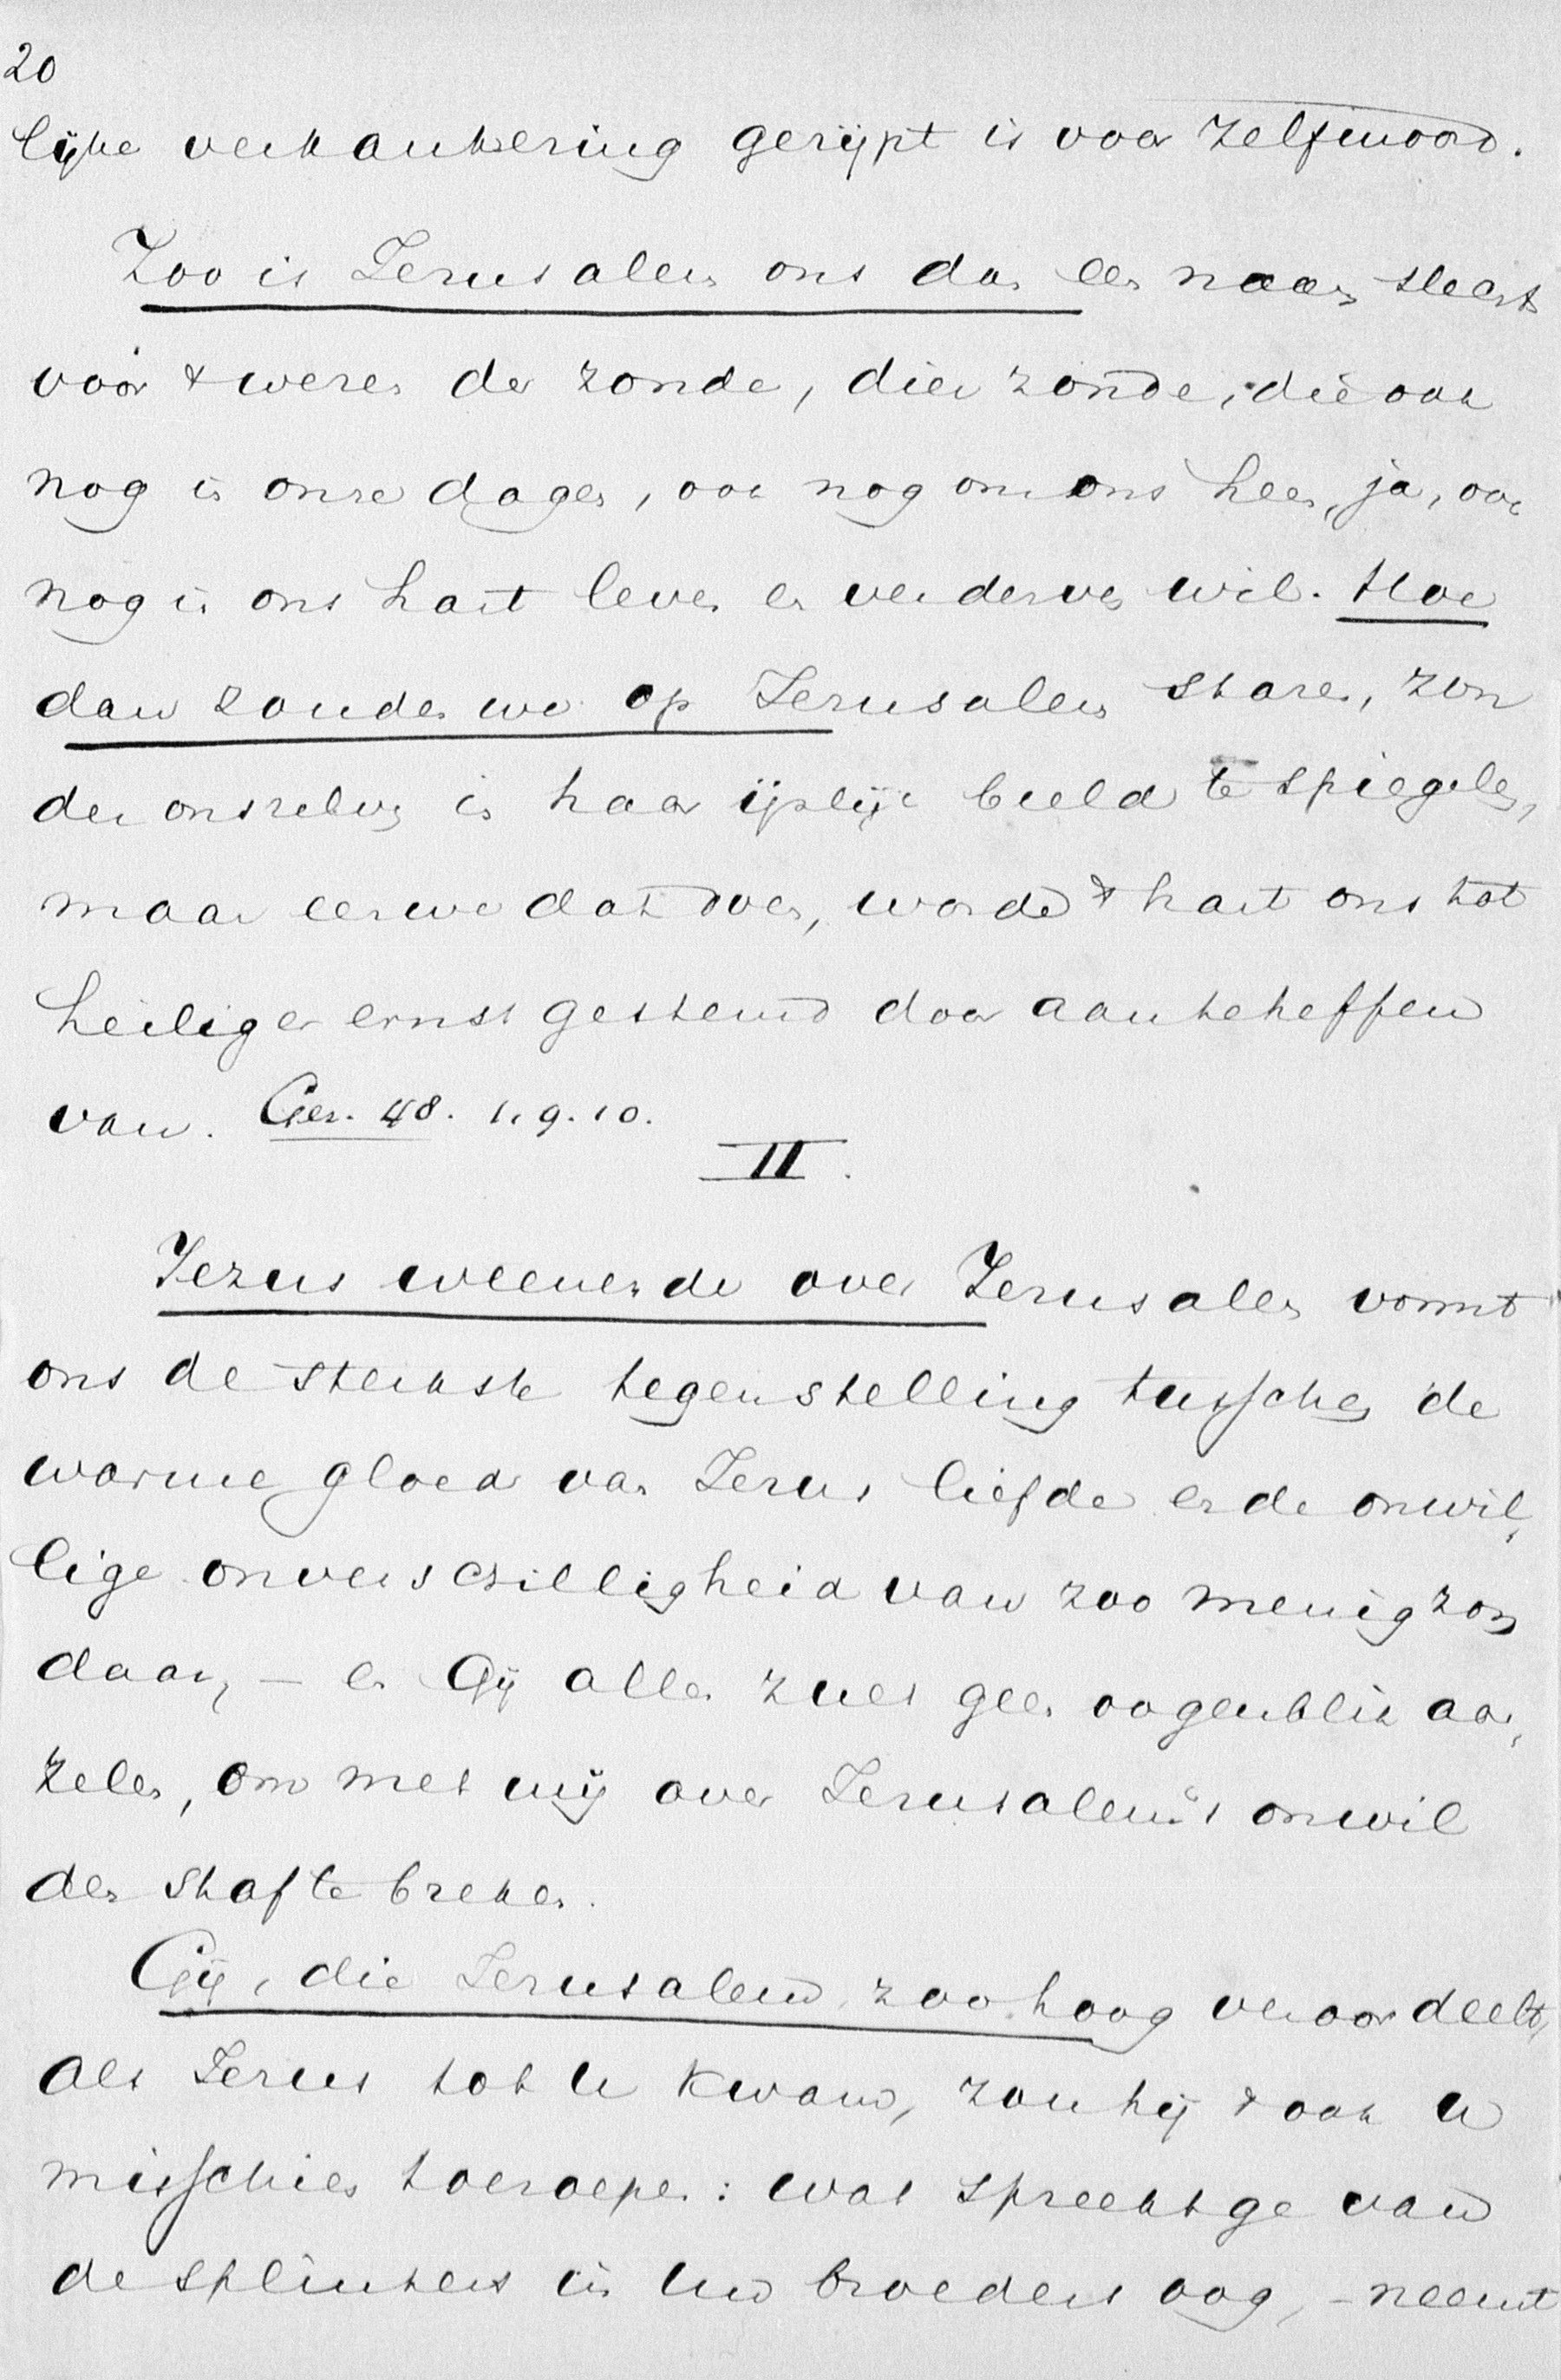 20
lijke verkankering gerijpt is voor zelfmoord.
Zoo is Jerusalem ons dan een naam slechts
voor 't wezen der zonde, dier zonde, die ook
nog in onze dagen, ook nog om ons heen, ja, ook
nog in ons hart leven en verderven wil. Hoe
dan zouden we op Jerusalem staren, zon
der onszelven in haar ijslijk beeld te spiegelen,
maar eer we dat doen, worde 't hart ons tot
heiligen ernst gestemd door aan te heffen
van. Gez. 48. 1. 9. 10.
II.
Jezus weenende over Jerusalem vormt
ons de sterkste tegenstelling tusschen de
warme gloed van Jezus liefde en de onwil
lige onverschilligheid van zoo menig zon
daar, - en Gij allen zult geen oogenblik aar
zelen, om met mij over Jerusalem's onwil
den staf te breken.
Gij, die Jerusalem zoo hoog veroordeelt,
als Jezus tot U kwam, zou hij 't ook U
misschien toeroepen: wat spreekt ge van
de splinters in Uw broeders oog, - neemt